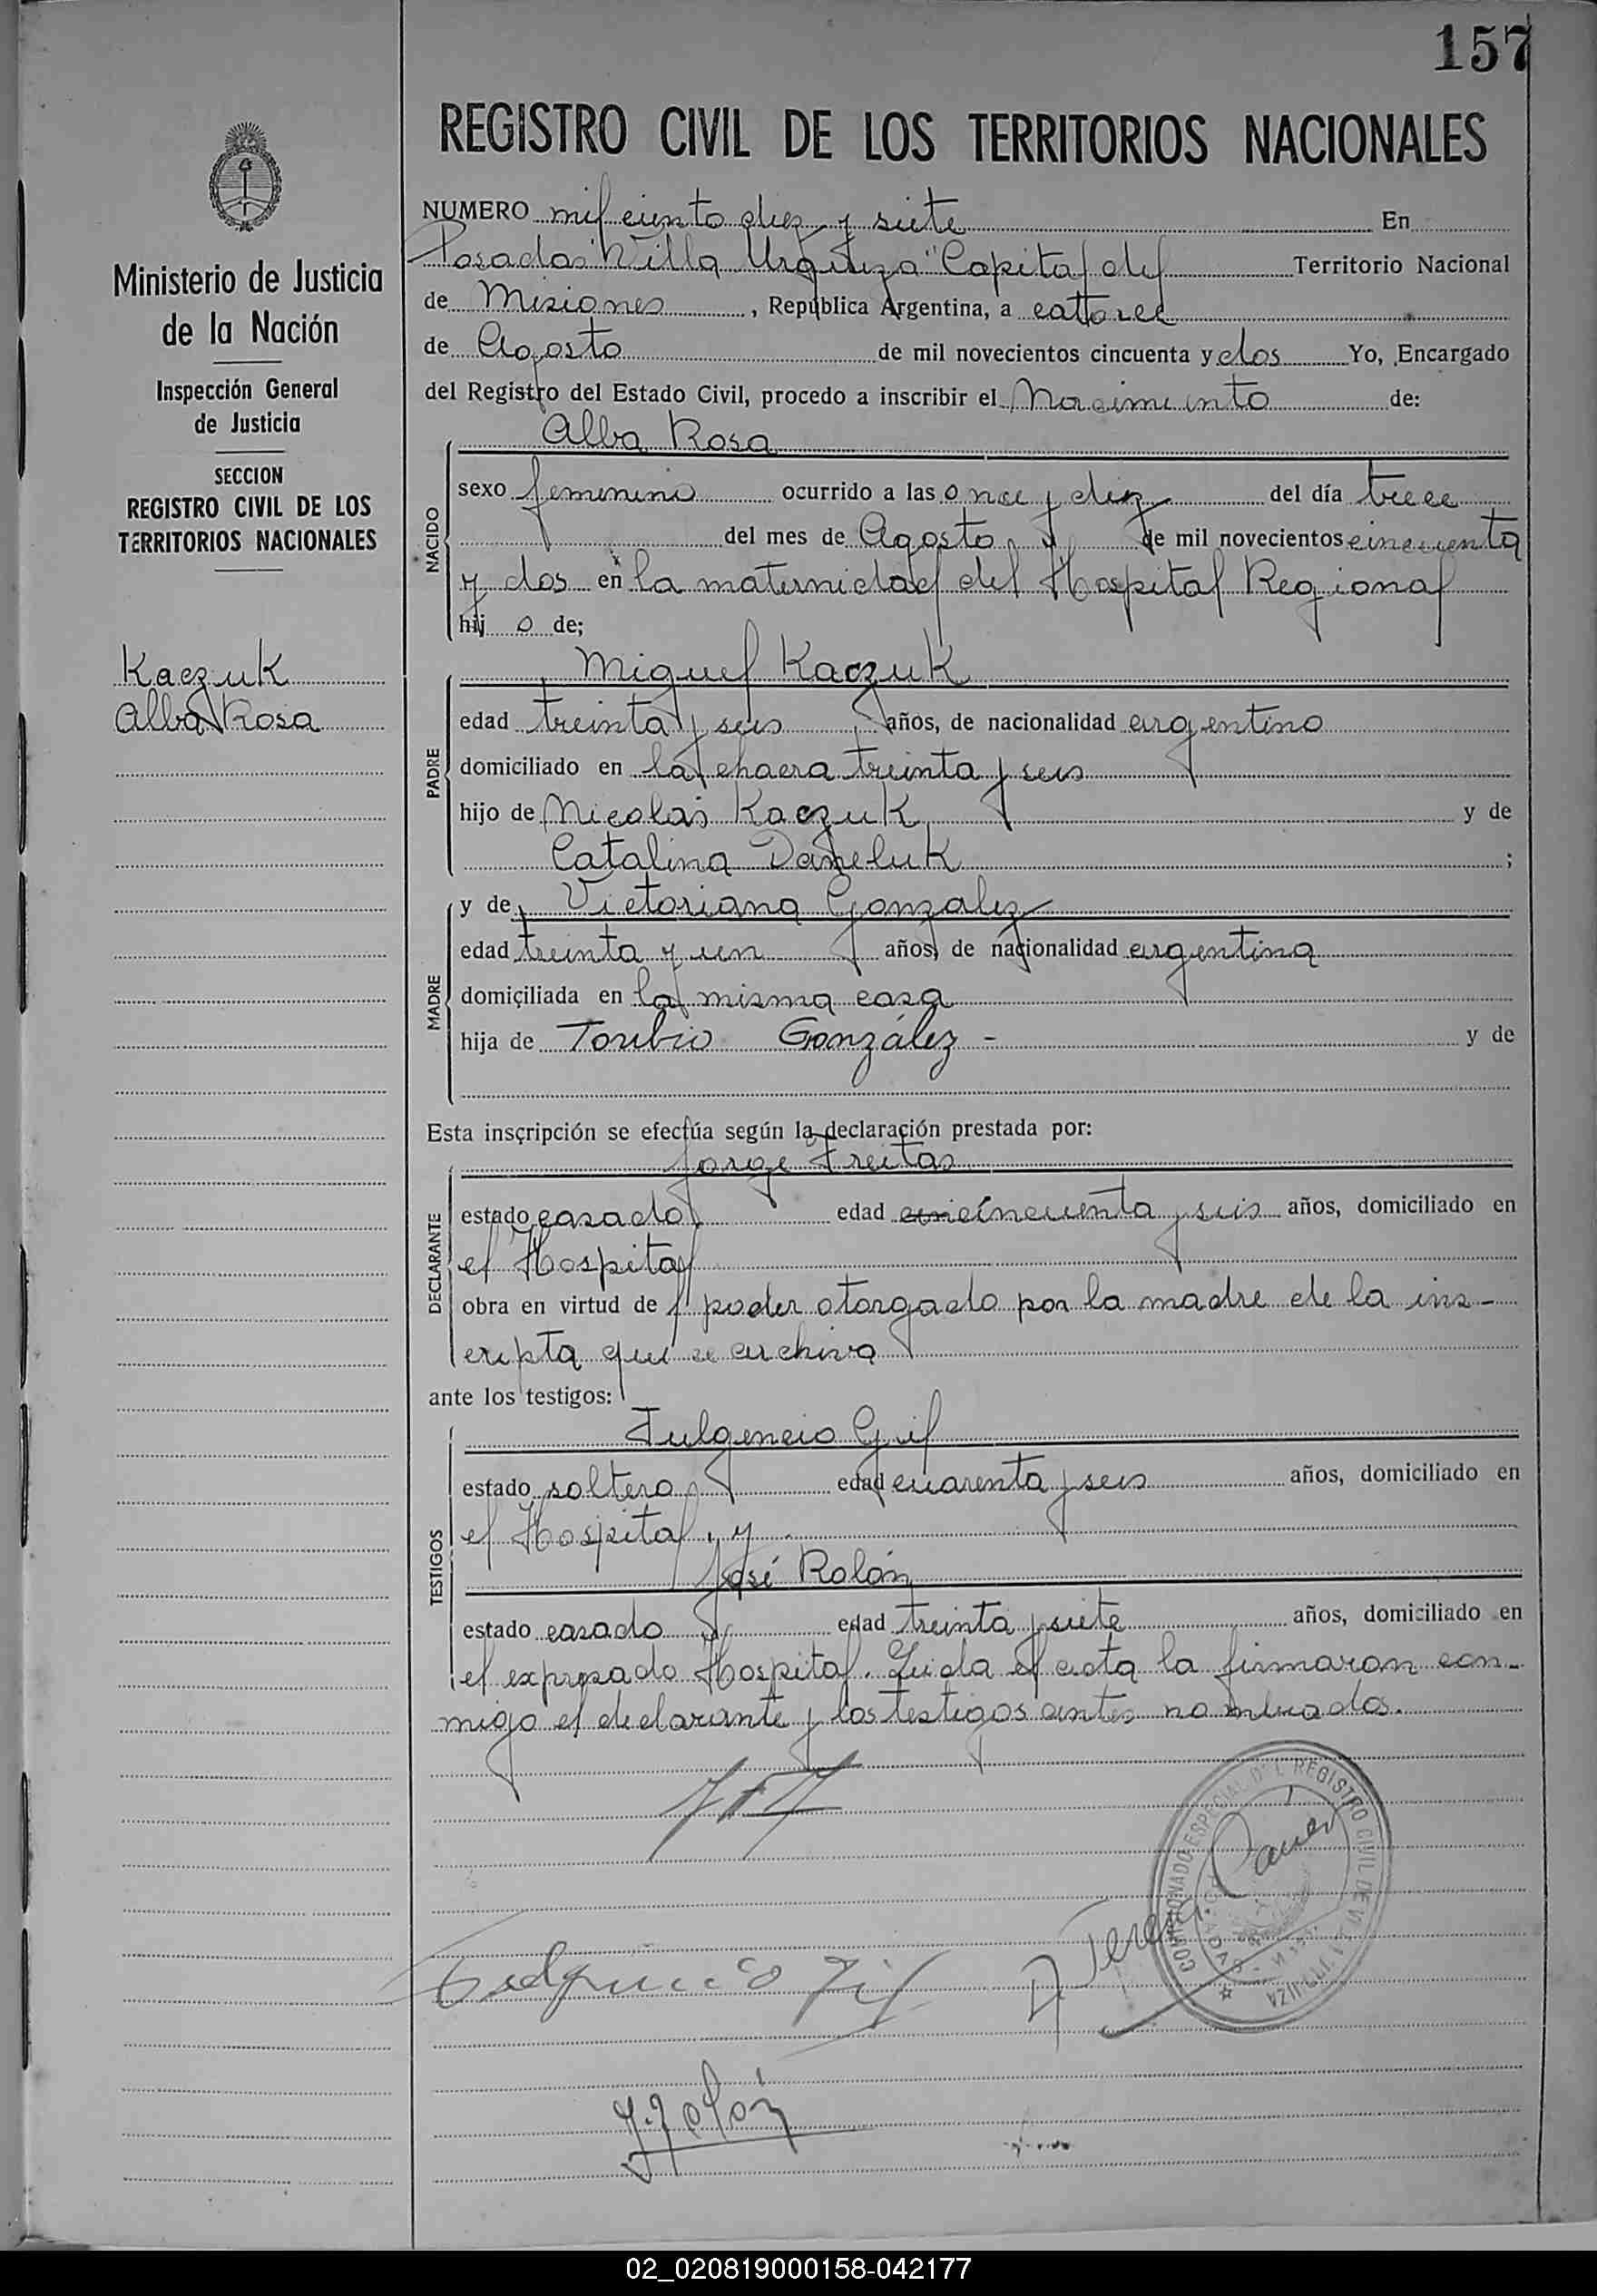 157
REGISTRO CIVIL DE LOS TERRITORIOS NACIONALES
Ministerio de Justicia
de la Nación
Inspección General
de Justicia
SECCION
REGISTRO CIVIL DE LOS
TERRITORIOS NACIONALES
Kaczuk
Alba Rosa
NUMERO mil ciento diez y siete En
Posadas "Villa Urquiza" Capital del Territorio Nacional
de Misiones, República Argentina, a catorce
de Agosto de mil novecientos cincuenta y dos Yo, Encargado
del Registro del Estado Civil, procedo a inscribir el Nacimiento de:
Alba Rosa
NACIDO
sexo femenino ocurrido a las once y diez del día trece
del mes de Agosto de mil novecientos cincuenta
y dos en la maternidad del Hospital Regional
hij o de;
Miguel Kaczuk
PADRE
edad treinta y seis años, de nacionalidad argentino
domiciliado en la chacra treinta y seis
hijo de Nicolás Kaczuk y de
Catalina Daneluk ;
MADRE
y de Victoriana Gonzalez
edad treinta y un años, de nacionalidad argentina
domiciliada en la misma casa
hija de Toribio González - y de
Esta inscripción se efectúa según la declaración prestada por:
Jorge Freitas
DECLARANTE
estado casado edad cincuenta y seis años, domiciliado en
el Hospital
obra en virtud de poder otorgado por la madre de la ins-
cripta que se archiva
ante los testigos:
Fulgencio Gil
TESTIGOS
estado soltero edad cuarenta y seis años, domiciliado en
el Hospital, y
José Rolón
estado casado edad treinta y siete años, domiciliado en
el expresado Hospital. Leida el acta la firmaron con-
migo el declarante y los testigos antes nombrados.
COMISIONADO ESPECIAL DEL REGISTRO CIVIL DE VILLA URQUIZA
Fulgencio Gil
J. Rolón
02_020819000158-042177